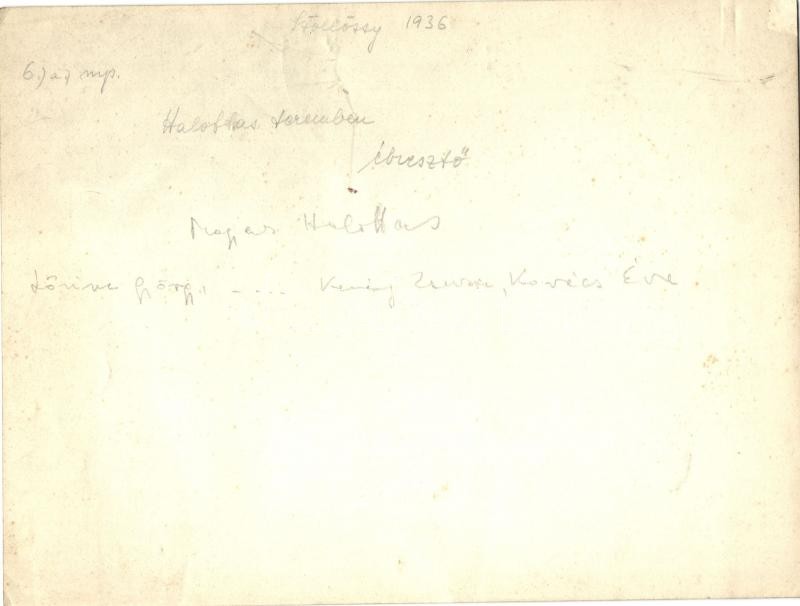 Szöllőssy 1936
6.) a) mp.
Halottas teremben
ébresztő
Magyar Halottas
Lőrinc György, .... Zsuzsa, Kovács Éva